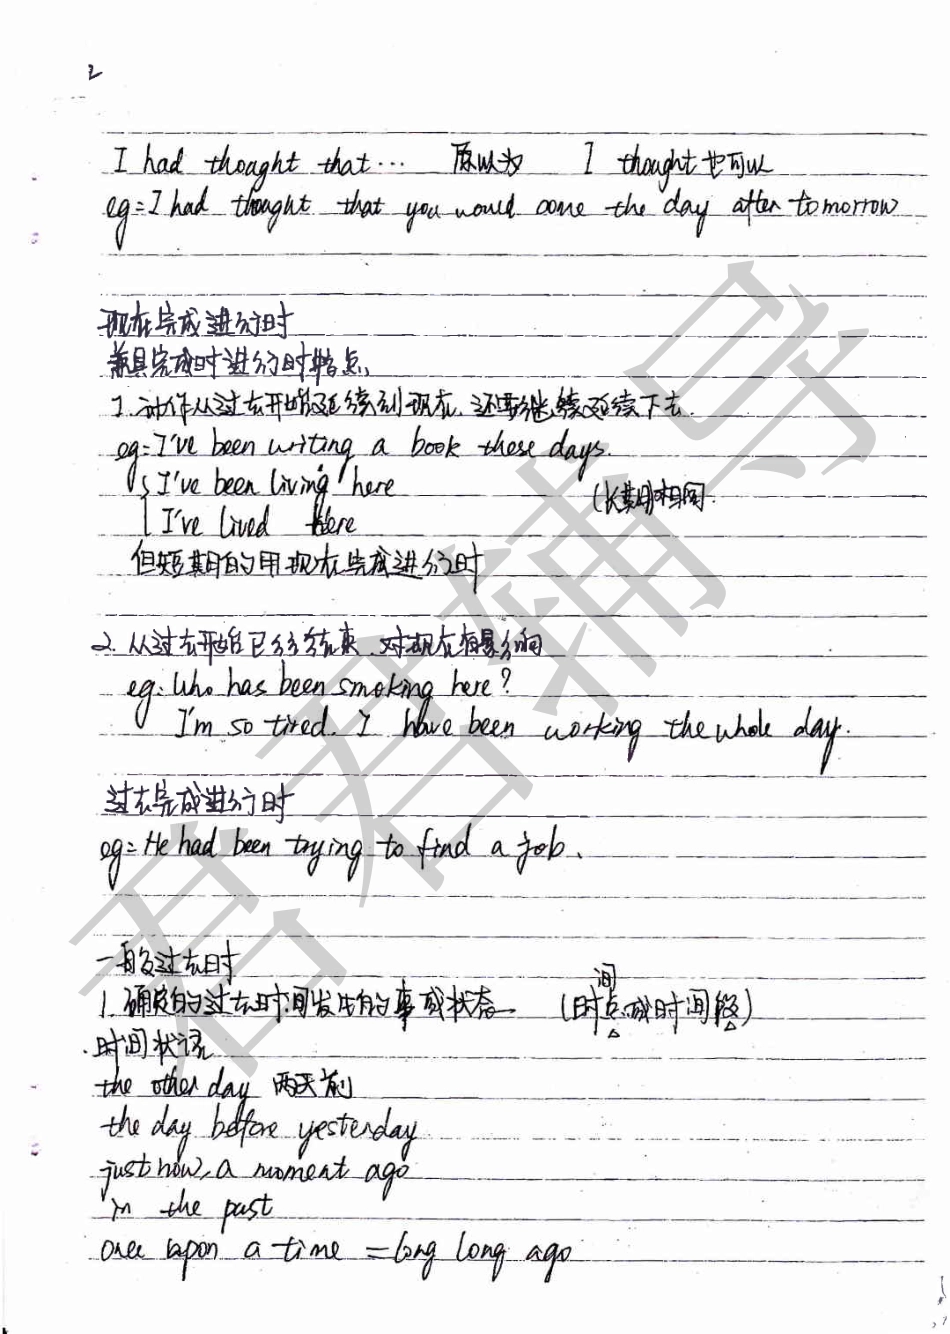 2
I had thought that… 原以为 I thought 也可以
eg: I had thought that you would come the day after tomorrow
现在完成进行时
兼具完成时进行时特点
1. 动作从过去开始延续到现在, 还要继续延续下去.
eg: I've been writing a book these days.
{ I've been living here
I've lived here (长期)相同.
但短期的用现在完成进行时
2. 从过去开始已经结束, 对现在有影响
eg: Who has been smoking here?
I'm so tired. I have been working the whole day.
过去完成进行时
eg: He had been trying to find a job.
一般过去时
1. 确定的过去时间发生的事或状态. (时间点或时间段)
时间状语
the other day 两天前
the day before yesterday
just now, a moment ago
in the past
once upon a time = long long ago
君君辅导